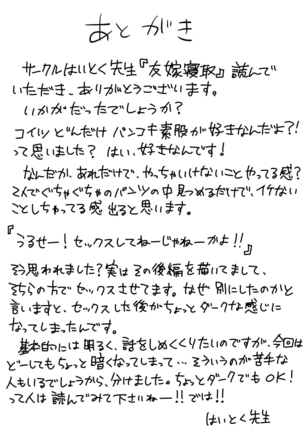 あとがき
サークルはいとく先生『友嫁寝取』読んで
いただき、ありがとうございます。
いかがだったでしょうか?
コイツどんだけパンコキ素股が好きなんだよ?!
って思いました? はい、好きなんです!
なんだか、あれだけで、やっちゃいけないことやってる感?
2人でぐちゃぐちゃのパンツの中見つめるだけで、イケない
ことしちゃってる感出ると思います。
『うるせー!セックスしてねーじゃねーかよ!!』
そう思われました?実はその後編を描いてまして、
そちらの方でセックスさせてます。なぜ別にしたのかと
言いますと、セックスした後がちょっとダークな感じに
なってしまったんです。
基本的には明るく、話をしめくくりたいのですが、今回は
どーしてもちょっと暗くなってしまって…そういうのが苦手な
人もいるでしょうから、分けました。ちょっとダークでもOK!
って人は読んでみて下さいねー!!では!!
はいとく先生